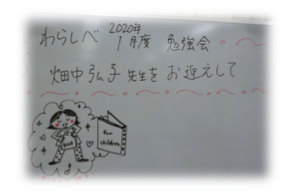 わらしべ 2020年 1月度 勉強会
畑中弘子先生をお迎えして
for children